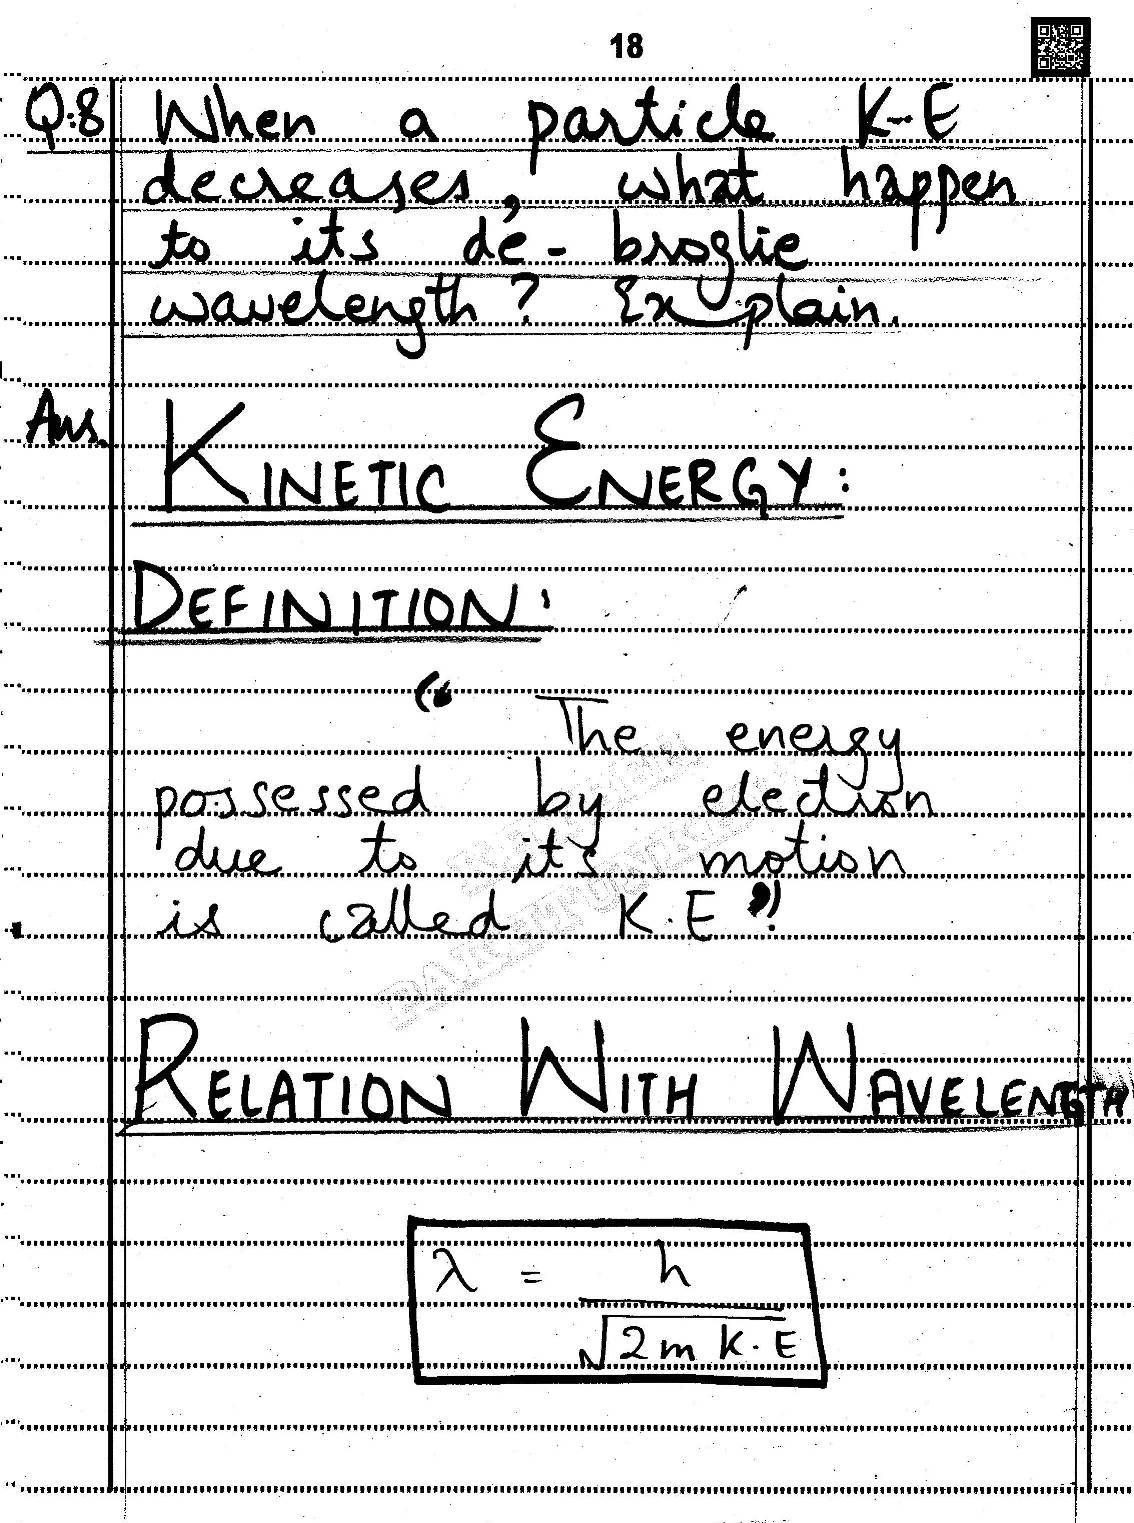 18
Q.8 When a particle K-E
decreases, what happen
to its de-broglie
wavelength? Explain.
Ans. KINETIC ENERGY:
DEFINITION:
“The energy
possessed by electron
due to it's motion
is called K.E”
RELATION WITH WAVELENGTH
λ = h
√2m K.E